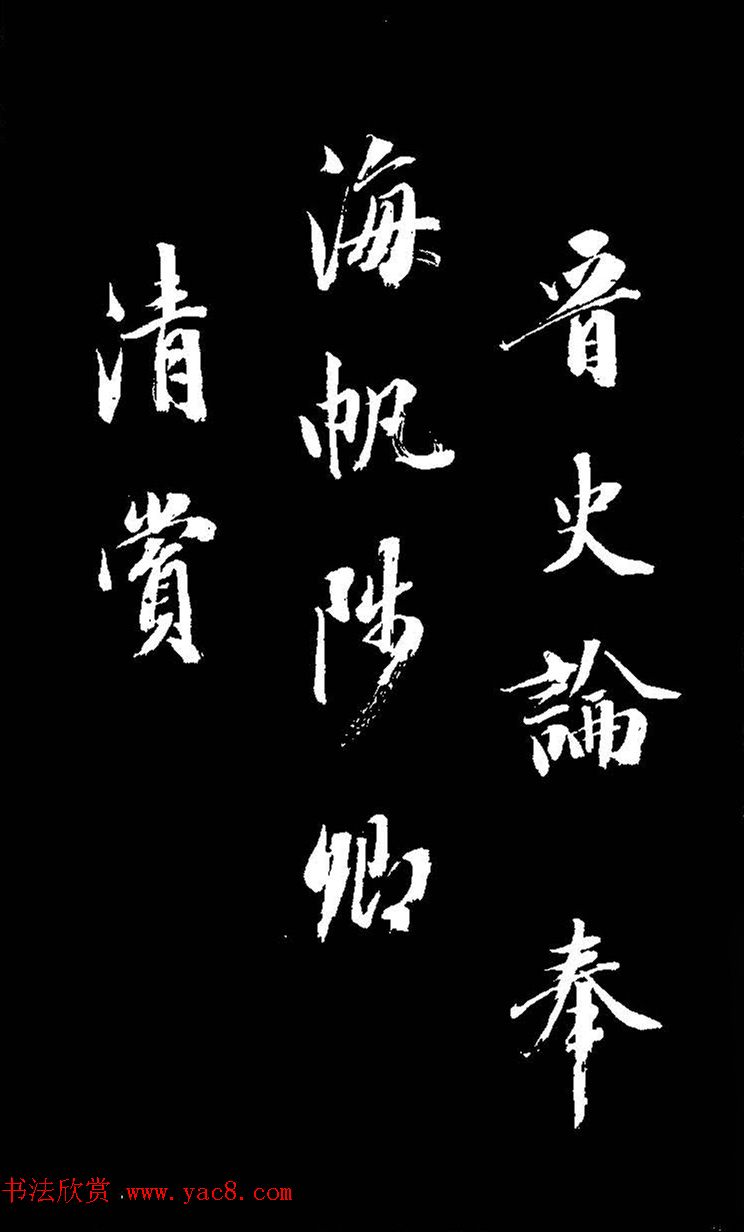 晋史論 奉
海帆陟卿
清賞
书法欣赏 .www.yac8.com